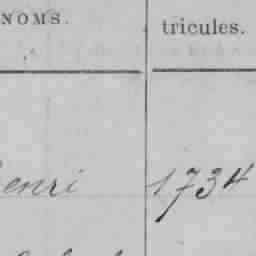 NOMS. tricules.
enri 1734